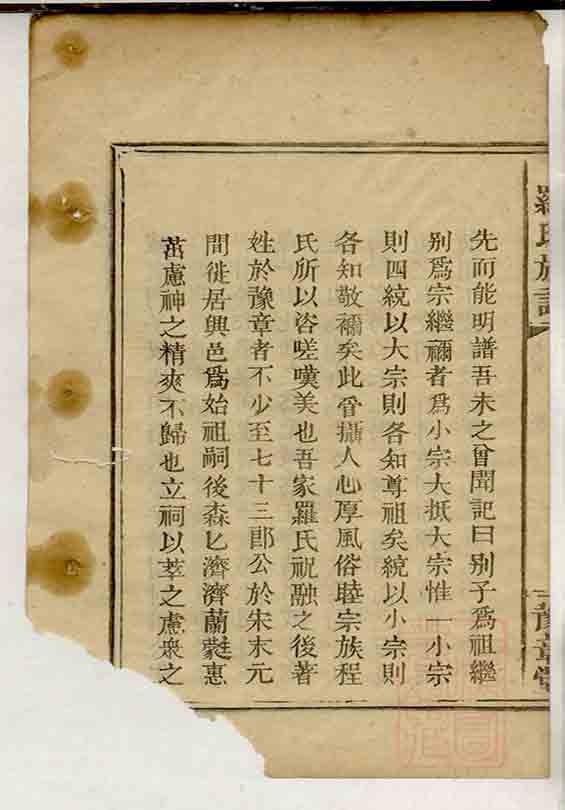 羅氏族譜
豫章堂
先而能明譜吾未之曾聞記曰别子爲祖繼
别爲宗繼禰者爲小宗大抵大宗惟一小宗
則四統以大宗則各知尊祖矣統以小宗則
各知敬禰矣此管攝人心厚風俗睦宗族程
氏所以咨嗟嘆美也吾家羅氏祝融之後著
姓於豫章者不少至七十三郎公於宋末元
間徙居興邑爲始祖嗣後森匕濟濟蘭蕤惠
茁慮神之精爽不歸也立祠以萃之慮衆之